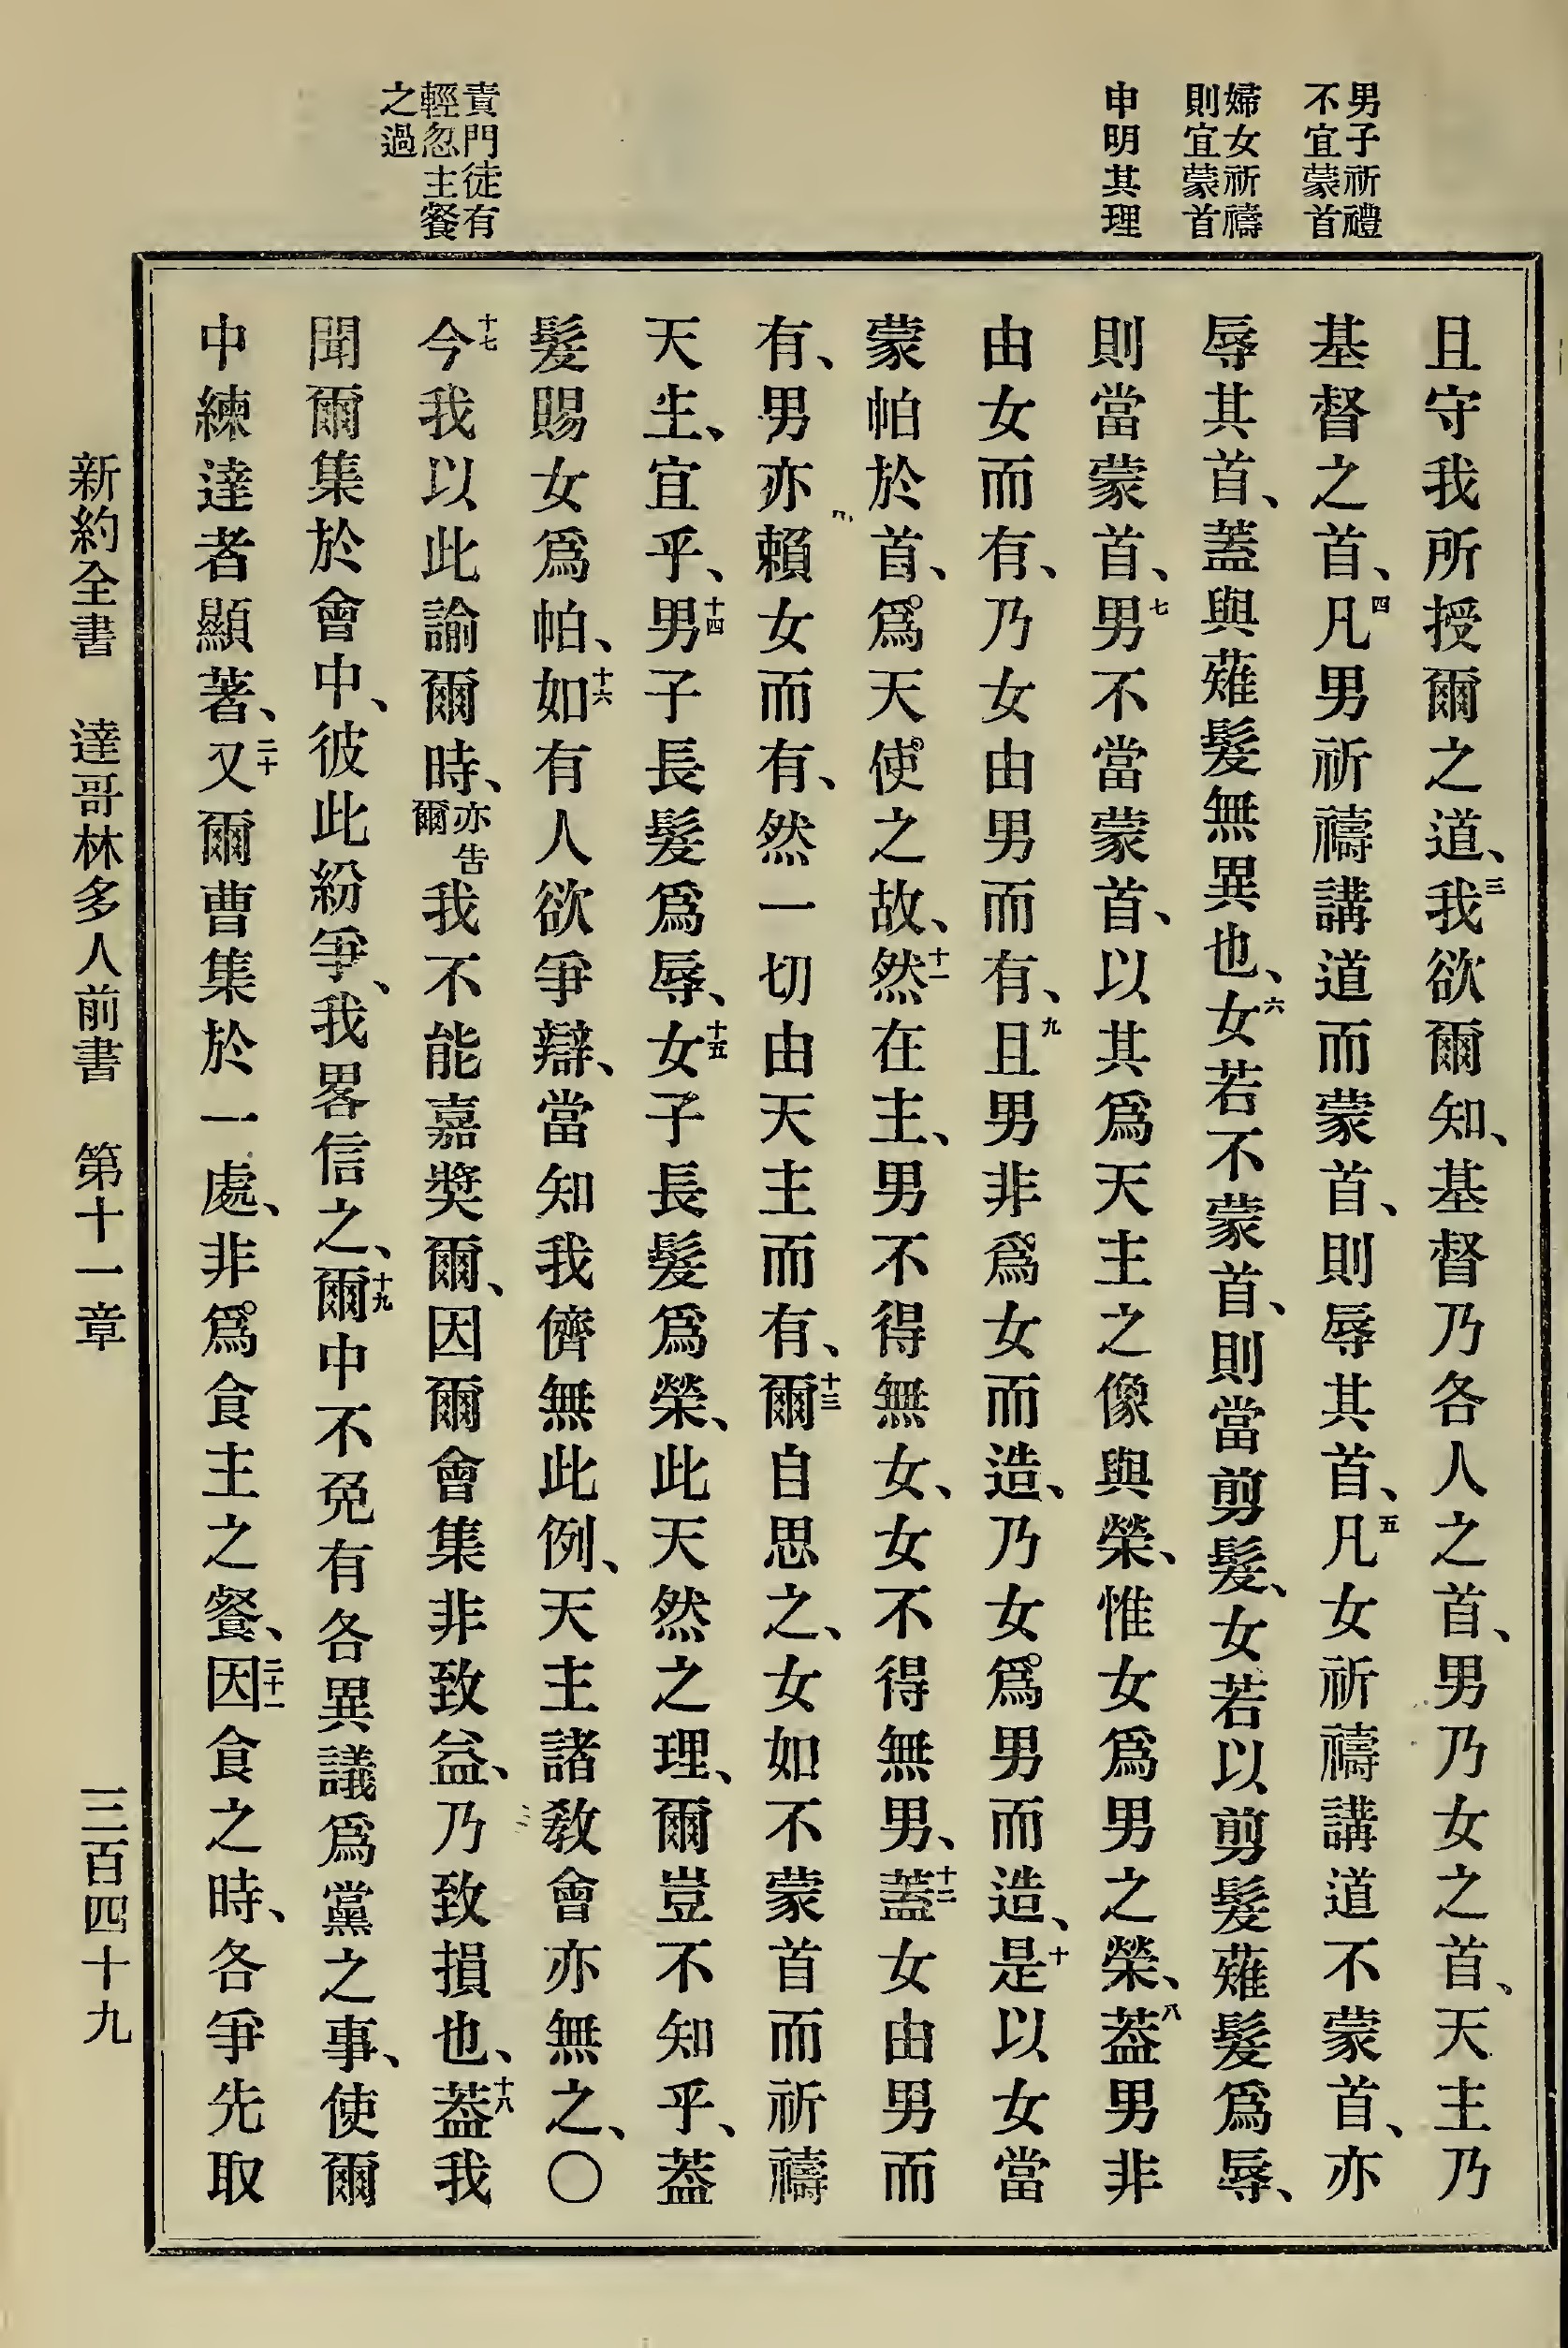 男子祈禮
不宜蒙首
婦女祈禱
則宜蒙首
申明其理
責門徒有
輕忽主餐
之過
且守我所授爾之道、三我欲爾知、基督乃各人之首、男乃女之首、天主乃
基督之首、四凡男祈禱講道而蒙首、則辱其首、五凡女祈禱講道不蒙首、亦
辱其首、蓋與薙髮無異也、六女若不蒙首、則當剪髮、女若以剪髮薙髮爲辱、
則當蒙首、七男不當蒙首、以其爲天主之像與榮、惟女爲男之榮、八葢男非
由女而有、乃女由男而有、九且男非爲女而造、乃女爲男而造、十是以女當
蒙帕於首、爲天使之故、十一然在主、男不得無女、女不得無男、十二蓋女由男而
有、男亦賴女而有、然一切由天主而有、十三爾自思之、女如不蒙首而祈禱
天主、宜乎、十四男子長髮爲辱、十五女子長髮爲榮、此天然之理、爾豈不知乎、葢
髮賜女爲帕、十六如有人欲爭辯、當知我儕無此例、天主諸敎會亦無之、〇
十七今我以此諭爾時、亦告爾我不能嘉奬爾、因爾會集非致益、乃致損也、十八葢我
聞爾集於會中、彼此紛爭、我畧信之、十九爾中不免有各異議爲黨之事、使爾
中練達者顯著、二十又爾曹集於一處、非爲食主之餐、二十一因食之時、各爭先取
新約全書 達哥林多人前書 第十一章 三百四十九